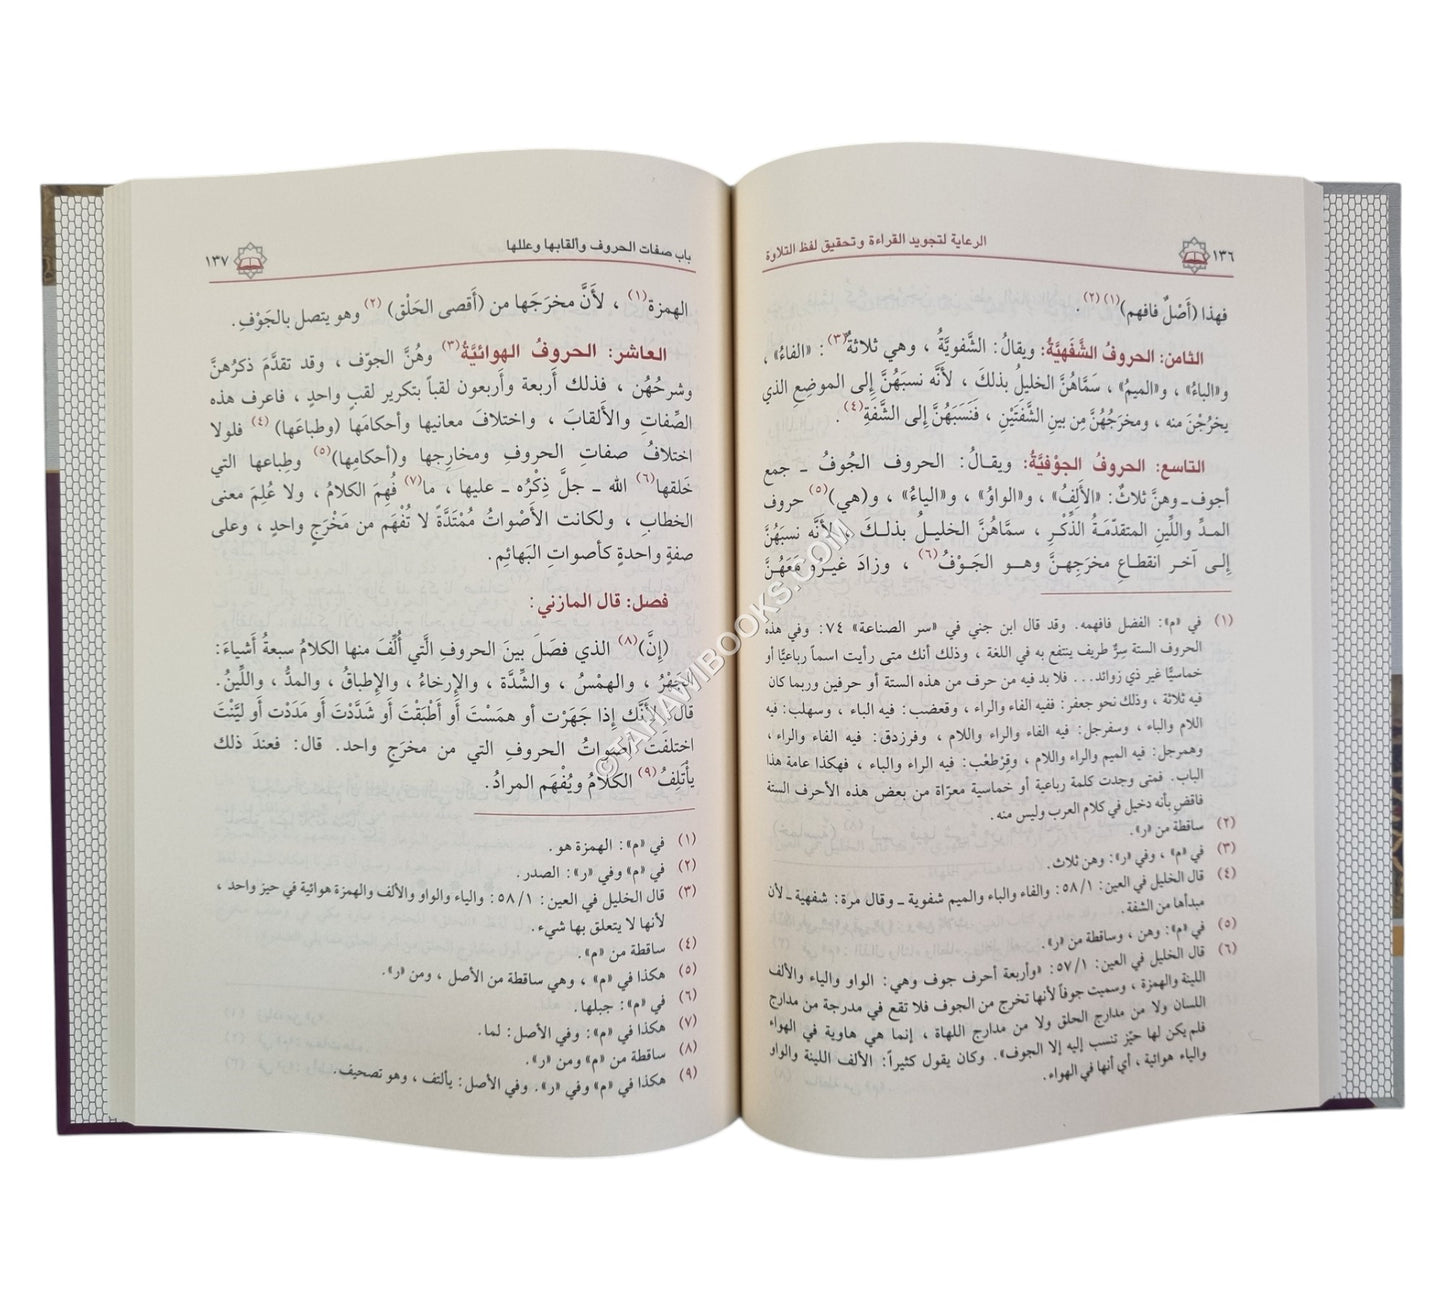 ١٣٦ الرعاية لتجويد القراءة وتحقيق لفظ التلاوة
فهذا (أَصْلٌ فافهم)(١)(٢) .
الثامن: الحروفُ الشَّفَهِيَّةُ: ويقالُ: الشَّفويَّةُ ، وهي ثلاثةٌ(٣) : «الفاءُ» ،
و«الباءُ» ، و«الميمُ» ، سَمَّاهُنَّ الخليلُ بذلكَ ، لأَنَّه نسبَهُنَّ إِلى الموضِعِ الذي
يخْرُجْنَ منه ، ومخرَجُهُنَّ مِن بينِ الشَّفَتَيْنِ ، فَنَسَبَهُنَّ إلى الشَّفةِ(٤) .
التاسع: الحروفُ الجوْفيَّةُ: ويقالُ: الحروف الجُوفُ ـ جمع
أجوف ـ وهنَّ ثلاثٌ: «الأَلِفُ» ، و«الواوُ» ، و«الياءُ» ، و(هي)(٥) حروف
المدِّ واللِّينِ المتقدّمَةُ الذِّكْرِ ، سمَّاهُنَّ الخليلُ بذلكَ ، لأَنَّه نسبَهُنَّ
إِلى آخر انقطاعِ مخرَجِهنَّ وهو الجَوْفُ(٦) ، وزادَ غيرُهُ مَعَهُنَّ
(١) في «م»: الفضل فافهمه. وقد قال ابن جني في «سر الصناعة» ٧٤: وفي هذه
الحروف الستة سِرٌّ طريف ينتفع به في اللغة ، وذلك أنك متى رأيت اسماً رباعيًّا أو
خماسيًّا غير ذي زوائد... فلا بد فيه من حرف من هذه الستة أو حرفين وربما كان
فيه ثلاثة ، وذلك نحو جعفر: ففيه الفاء والراء ، وقعضب: فيه الباء ، وسهلب: فيه
اللام والباء ، وسفرجل: فيه الفاء والراء واللام ، وفرزدق: فيه الفاء والراء،
وهمرجل: فيه الميم والراء واللام ، وقِرْطَعْب: فيه الراء والباء ، فهكذا عامة هذا
الباب. فمتى وجدت كلمة رباعية أو خماسية معرّاة من بعض هذه الأحرف الستة
فاقضِ بأنه دخيل في كلام العرب وليس منه.
(٢) ساقطة من «ر».
(٣) في «م» ، وفي «ر»: وهن ثلاث.
(٤) قال الخليل في العين: ٥٨/١: والفاء والباء والميم شفوية ـ وقال مرة: شفهية ـ لأن
مبدأها من الشفة.
(٥) في «م»: وهن ، وساقطة من «ر».
(٦) قال الخليل في العين: ٥٧/١: «وأربعة أحرف جوف وهي: الواو والياء والألف
اللينة والهمزة ، وسميت جوفاً لأنها تخرج من الجوف فلا تقع في مدرجة من مدارج
اللسان ولا من مدارج الحلق ولا من مدارج اللهاة ، إنما هي هاوية في الهواء
فلم يكن لها حيّز تنسب إليه إلا الجوف». وكان يقول كثيراً: الألف اللينة والواو
والياء هوائية ، أي أنها في الهواء.
باب صفات الحروف وألقابها وعللها ١٣٧
الهمزة(١) ، لأَنَّ مخرَجَها من (أَقصى الحَلْق)(٢) وهو يتصل بالجَوْفِ.
العاشر: الحروفُ الهوائيَّةُ(٣) وهُنَّ الجوّف ، وقد تقدَّمَ ذكرُهنَّ
وشرحُهُن ، فذلك أَربعة وأَربعون لقباً بتكرير لقبٍ واحدٍ ، فاعرف هذه
الصِّفاتِ والأَلقابَ ، واختلافَ معانيها وأحكامَها (وطباعَها)(٤) فلولا
اختلافُ صفاتِ الحروفِ ومخارِجها و(أحكامِها)(٥) وطِباعها التي
خَلقها(٦) الله ـ جلَّ ذِكْرُه ـ عليها ، ما(٧) فُهِمَ الكلامُ ، ولا عُلِمَ معنى
الخطابِ ، ولكانت الأَصْواتُ مُمْتَدَّةً لا تُفْهَم من مَخْرَجٍ واحدٍ ، وعلى
صفةٍ واحدةٍ كأصواتِ البَهائِمِ.
فصل: قال المازني:
(إِنَّ)(٨) الذي فصَلَ بينَ الحروفِ الَّتي أُلِّفَ منها الكلامُ سبعةُ أَشياءَ:
الجَهْرُ ، والهمْسُ ، والشِّدَّة ، والإِرخاءُ ، والإِطباقُ ، والمدُّ ، واللِّينُ.
قال: لأَنَّك إذا جَهَرْت أو همَسْت أَو أَطبَقْتَ أَو شَدَّدْتَ أَو مَدَدْت أَو ليَّنْتَ
اختلفت أَصواتُ الحروفِ التي من مخرَجٍ واحد. قال: فعندَ ذلك
يأْتَلِفُ(٩) الكلامُ ويُفْهَم المرادُ.
(١) في «م»: الهمزة هو.
(٢) في «م» وفي «ر»: الصدر.
(٣) قال الخليل في العين: ٥٨/١: والياء والواو والألف والهمزة هوائية في حيز واحد ،
لأنها لا يتعلق بها شيء.
(٤) ساقطة من «م».
(٥) هكذا في «م» ، وهي ساقطة من الأصل ، ومن «ر».
(٦) في «م»: جبلها.
(٧) هكذا في «م»: وفي الأصل: لما.
(٨) ساقطة من «م» ومن «ر».
(٩) هكذا في «م» وفي «ر». وفي الأصل: يألتف ، وهو تصحيف.
©TAHAWIBOOKS.COM